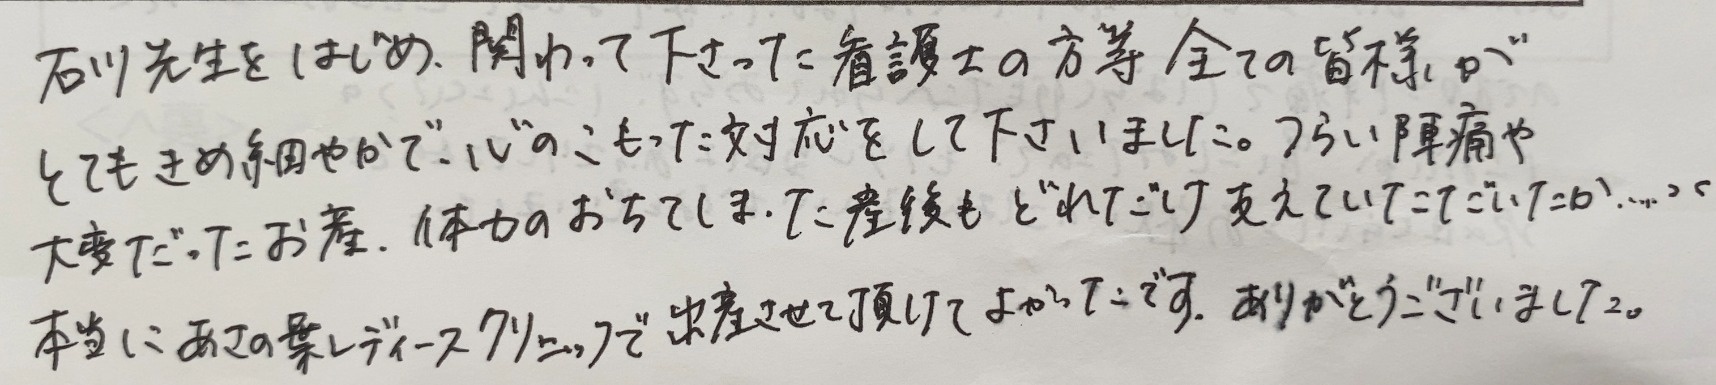 石川先生をはじめ、関わって下さった看護士の方等全ての皆様が
とてもきめ細やかで、心のこもった対応をして下さいました。つらい陣痛や
大変だったお産、体力のおちてしまった産後もどれだけ支えていただいたか……。
本当にあさの葉レディースクリニックで出産させて頂けてよかったです。ありがとうございました。